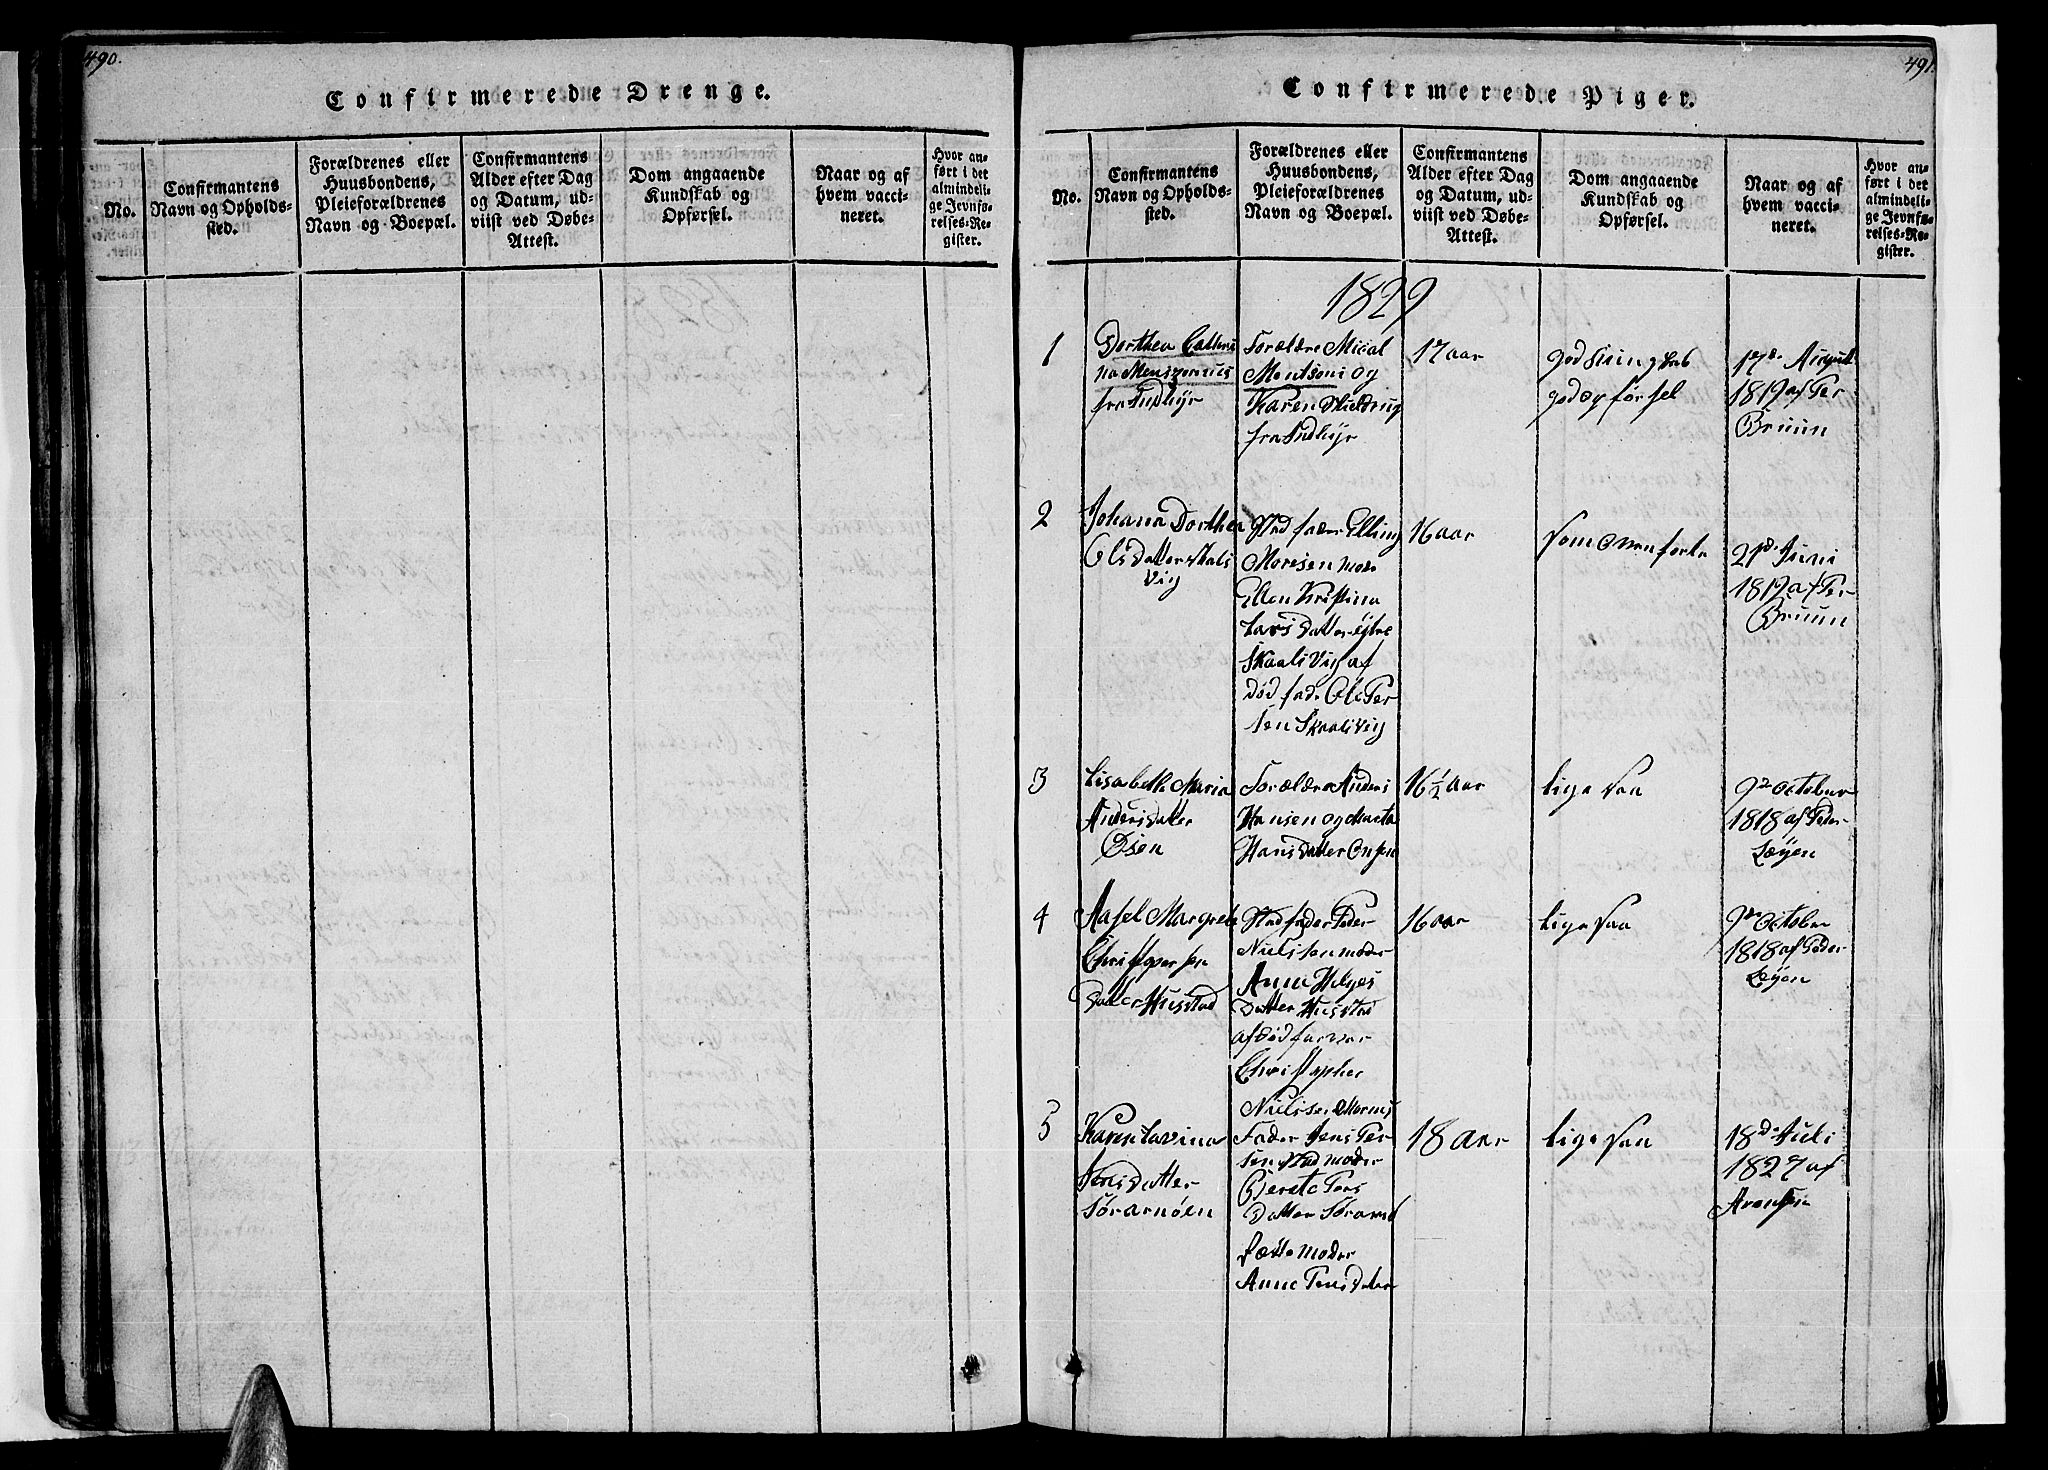 490.
Confirmerede Drenge.
No.
Confirmantens
Navn og Opholds-
sted.
Forældrenes eller
Huusbondens,
Pleieforældrenes
Navn og Boepæl.
Confirmantens
Alder efter Dag
og Datum, ud-
viist ved Døbe-
Attest.
Dom angaaende
Kundskab og
Opførsel.
Naar og af
hvem vacci-
neret.
Hvor an-
ført i det
almindeli-
ge Jevnfø-
relses-Re-
gister.
491.
Confirmerede Piger.
No.
Confirmantens
Navn og Opholds-
sted.
Forældrenes eller
Huusbondens,
Pleieforældrenes
Navn og Boepæl.
Confirmantens
Alder efter Dag
og Datum, ud-
viist ved Døbe-
Attest.
Dom angaaende
Kundskab og
Opførsel.
Naar og af
hvem vacci-
neret.
Hvor an-
ført i det
almindeli-
ge Jevnfø-
relses-Re-
gister.
1829
1
Dorthea Cathri
na
fra Indhyr
Forældre Mical
Montsens og
Karen
fra Indhyr
17 aar
god
god opførsel
17de August
1819 af Per
Bruun
2
Johana Dorthea
Olsdatter Skals
vig
Stedfader Elling
Moresen moder
Ellen Kristina
Larsdatter
Skaalsvig af
død fader Ole Per
sen Skaalsvig
16 aar
som ovenforte
21de Juni
1819 af Per
Bruun
3
Lisabeth Maria
Andersdatter
Øsen
Forældre Anders
Hansen og Marta
Hansdatter Onsen
16 1/2 aar
lige saa
9de October
1818 af Peder
Løyen
4
Aasel Margrete
Christopersen
datter Husstad
Stedfader Peder
Nielssen moder
Anna Helges
datter Husstad
afdød farver
Christopher
Nielssen
16 aar
lige saa
9de October
1818 af Peder
Løyen
5
Karen Lavina
Jensdatter
Sørarnøen
Fader Jens Per
sen Sted moder
Berete Pers
datter Sørarnø
Rette moder
Anne Jensdatter
18 aar
lige saa
18de Juli
1827 af
Arentsen